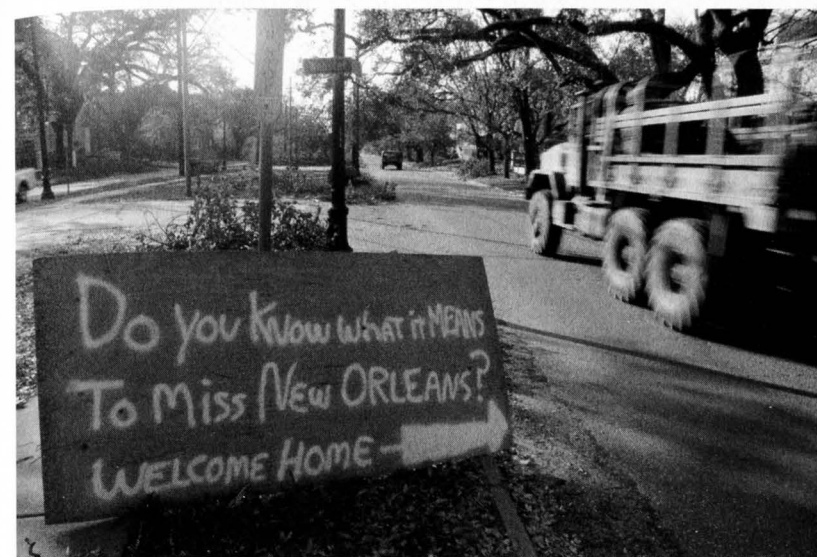 Do you Know WHAT it MEANS
To Miss New ORLEANS?
WELCOME HOME